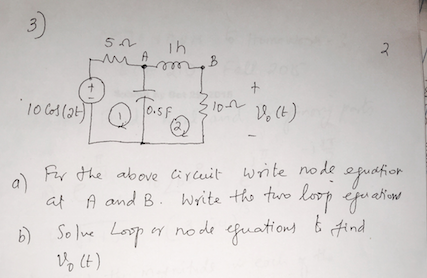 3)
2
5 Ω
1h
A
B
+
10 Cos(2t)
1
0.5F
2
10 Ω
+
V₀(t)
-
a) For the above circuit write node equation
at A and B. Write the two loop equations
b) Solve Loop or node equations to find
V₀(t)